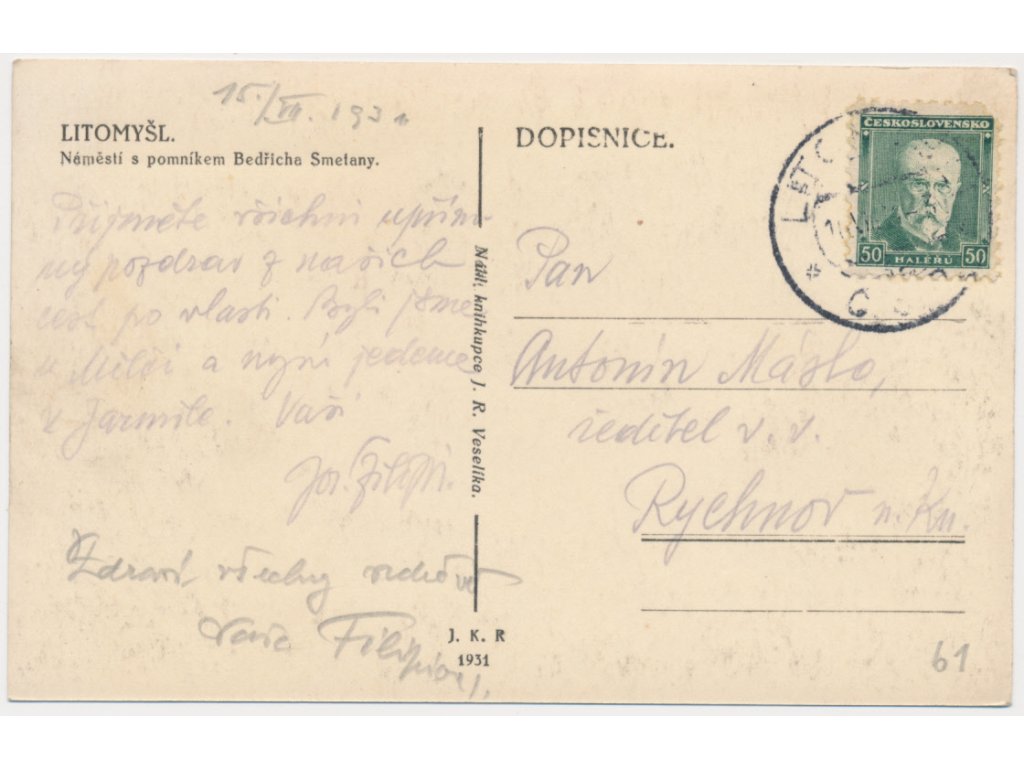 15./VII. 1931
LITOMYŠL.
Náměstí s pomníkem Bedřicha Smetany.
Přijměte všichni upřím-
ný pozdrav z našich
cest po vlasti. Byli jsme
u Miloši a nyní jedeme
k Jarmile. Vaši
Jos. Filipi.
Zdraví všechny srdečně
Vaše Filipiová.
Nákl. knihkupce J. R. Veselíka.
J. K. R
1931
DOPISNICE.
ČESKOSLOVENSKO
50 HALÉŘŮ 50
Pan
Antonín Máslo,
ředitel v. v.
Rychnov n. Kn.
61